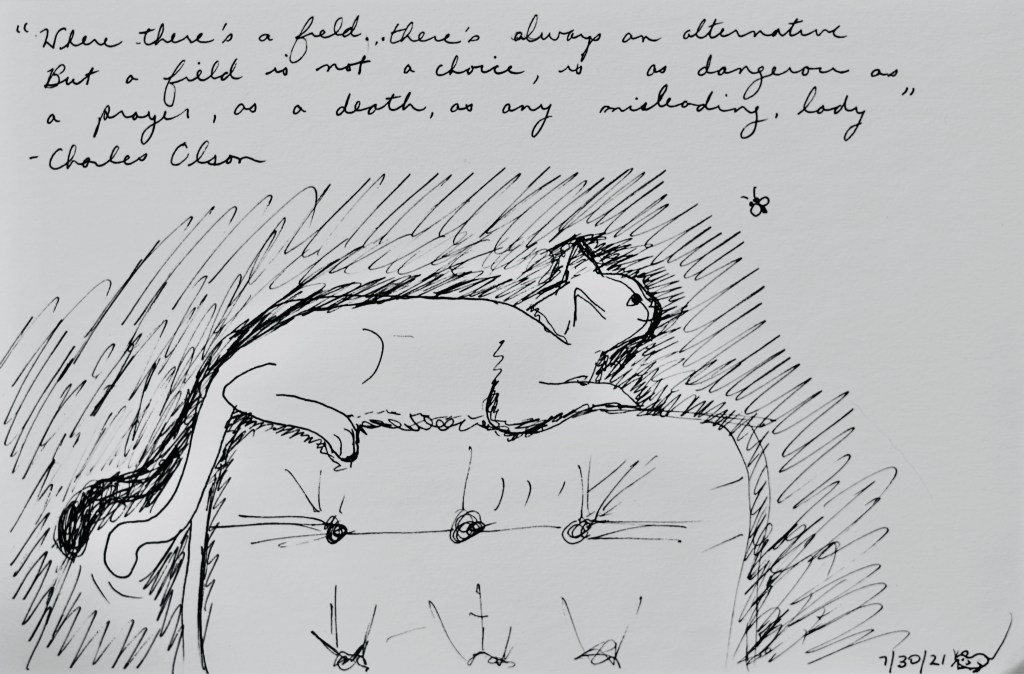 “Where there's a field...there's always an alternative
But a field is not a choice, is as dangerous as
a prayer, as a death, as any misleading, lady”
- Charles Olson
7/30/21